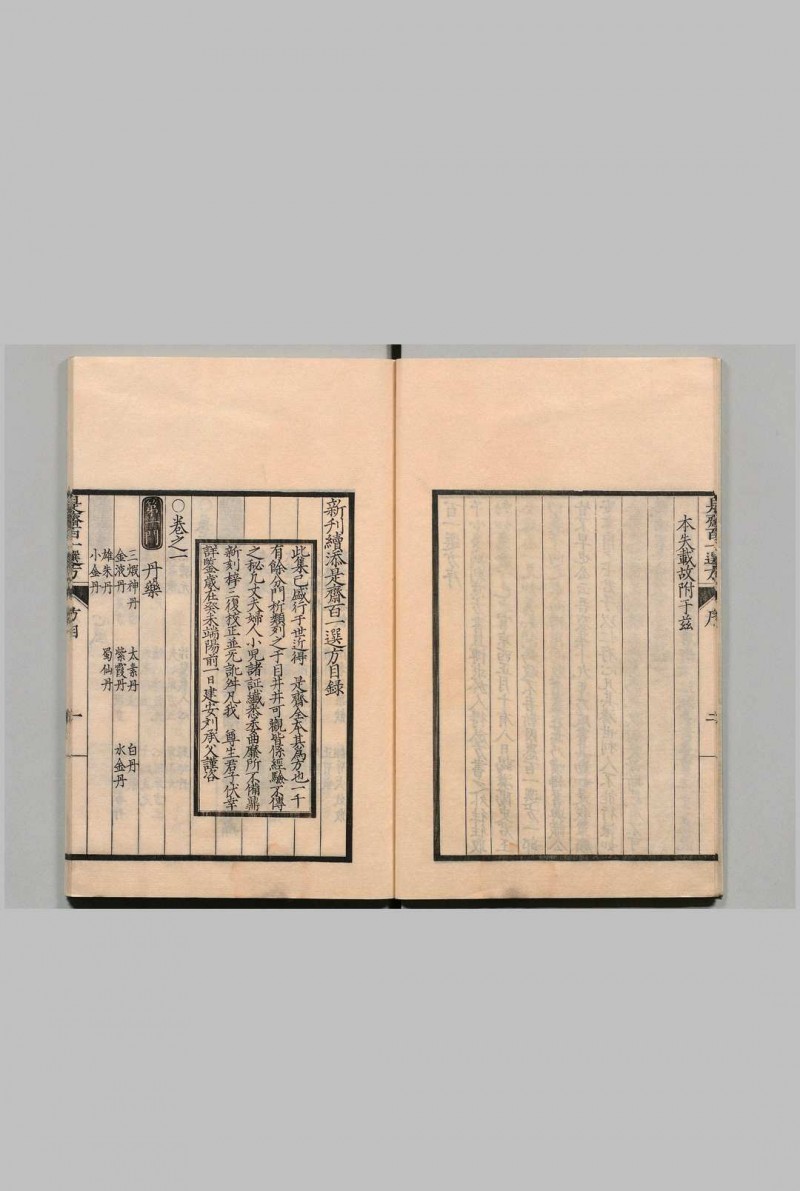 本失載故附于兹
是齋百一選方
序
二
新刊續添是齋百一選方目錄
此集已盛行于世近得 是齋全本其爲方也一千
有餘分門析類列之于目井井可觀皆係經驗不傳
之秘凢丈夫婦人小児諸証纎悉委曲靡所不備鼎
新刻梓三復校正並无訛舛凡我 尊生君子伏幸
詳鑒歳在癸未端陽前一日建安刘承父謹咨
○卷之一
丹藥
三煆神丹 太素丹 白丹
金液丹 紫霞丹 水金丹
雄朱丹 蜀仙丹
小金丹
是齋百一選方
一